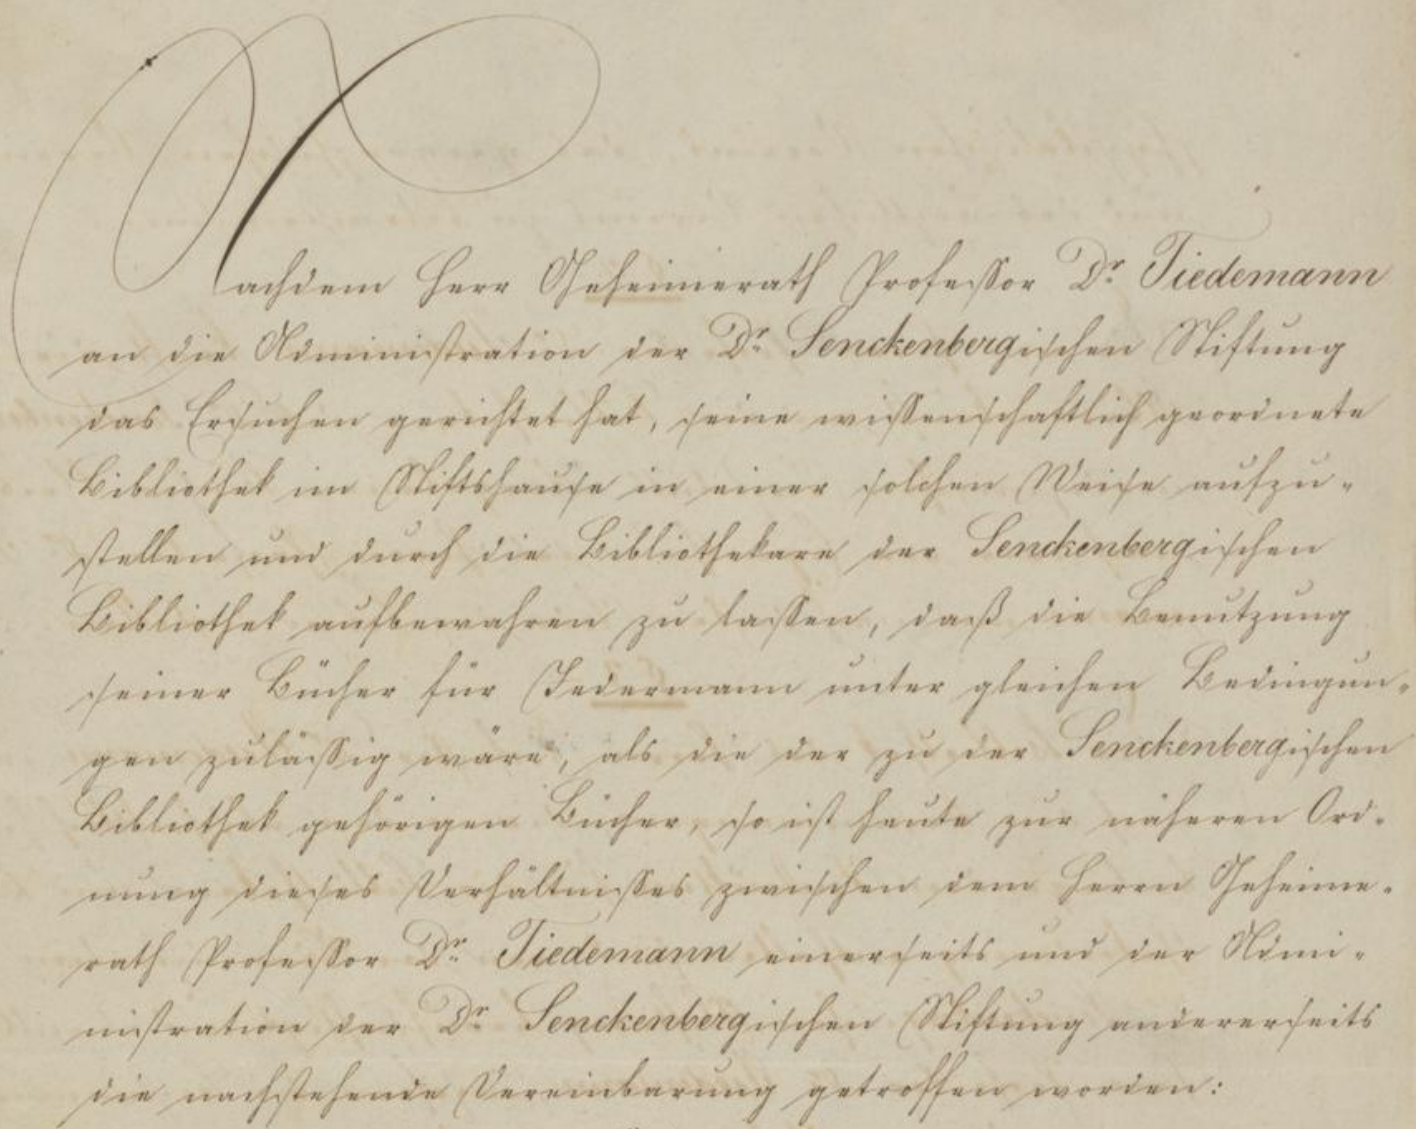 Nachdem Herr Geheimerath Professor Dr. Tiedemann
an die Administration der Dr. Senckenbergischen Stiftung
das Ersuchen gerichtet hat, seine wissenschaftlich geordnete
Bibliothek im Stiftshause in einer solchen Weise aufzu-
stellen und durch die Bibliothekare der Senckenbergischen
Bibliothek aufbewahren zu lassen, daß die Benutzung
seiner Bücher für Jedermann unter gleichen Bedingun-
gen zulässig wäre, als die der zu der Senckenbergischen
Bibliothek gehörigen Bücher, so ist heute zur näheren Ord-
nung dieses Verhältnisses zwischen dem Herrn Geheime-
rath Professor Dr. Tiedemann einerseits und der Admi-
nistration der Dr. Senckenbergischen Stiftung andererseits
die nachstehende Vereinbarung getroffen worden: